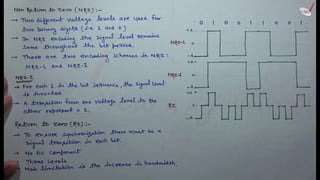 Non Return to Zero (NRZ):-
→ Two different voltage levels are used for
two binary digits (i.e 1 and 0)
→ In NRZ encoding the signal level remains
same throughout the bit period.
→ There are two encoding schemes in NRZ:
NRZ-L and NRZ-I
NRZ-I
→ For each 1 in the bit sequence, the signal level
is inverted
→ A transition from one voltage level to the
other represent a 1.
Return to Zero (RZ):-
→ To ensure synchronization there must be a
signal transition in each bit.
→ No DC Component
→ Three Levels
→ Main limitation is the increase in bandwidth
0 1 0 0 1 1 0 0 1
NRZ-L
NRZ-I
RZ